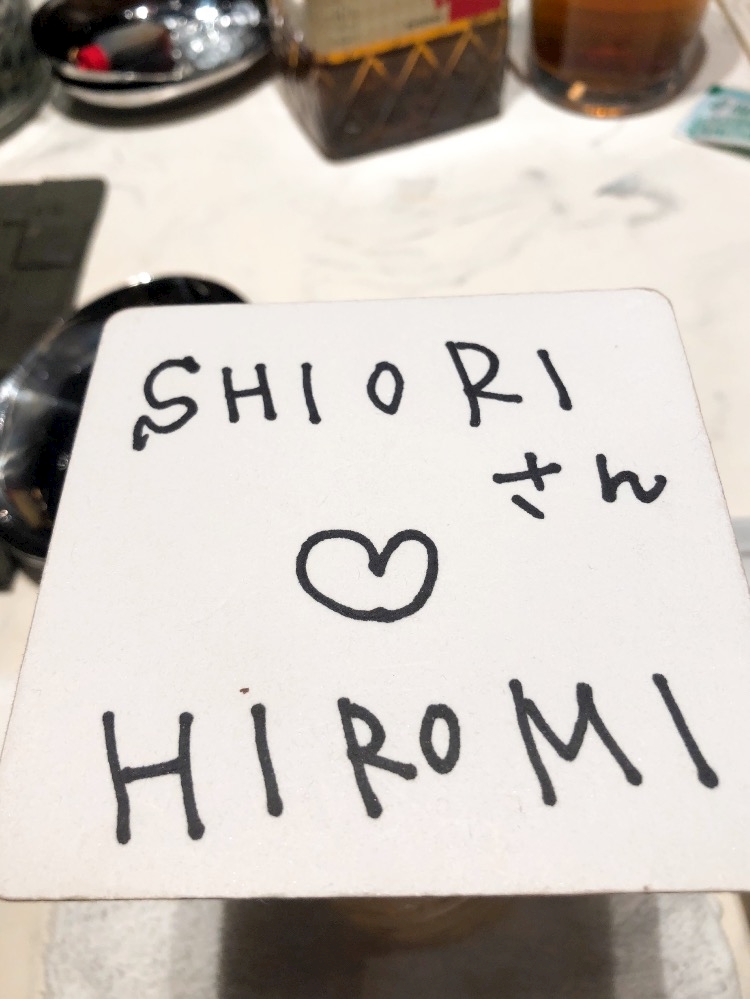 SHIORI
さん
♡
HIROMI